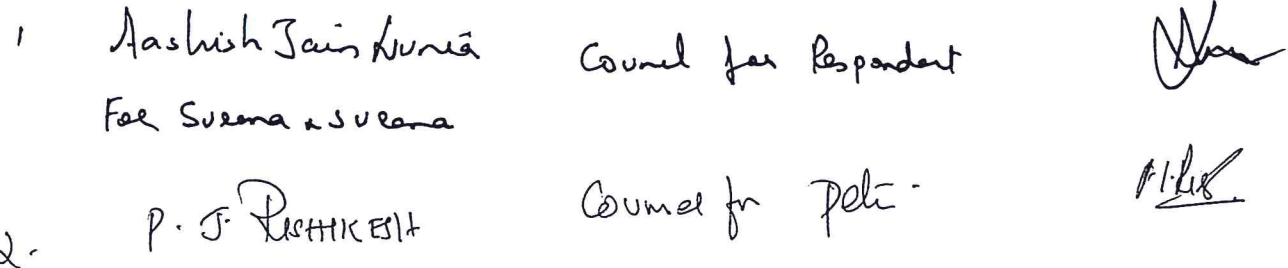 1 Aashish Jain Lunia Counsel for Respondent
For Surana & Surana
2. P. J. RISHIKESH Counsel for Peti.